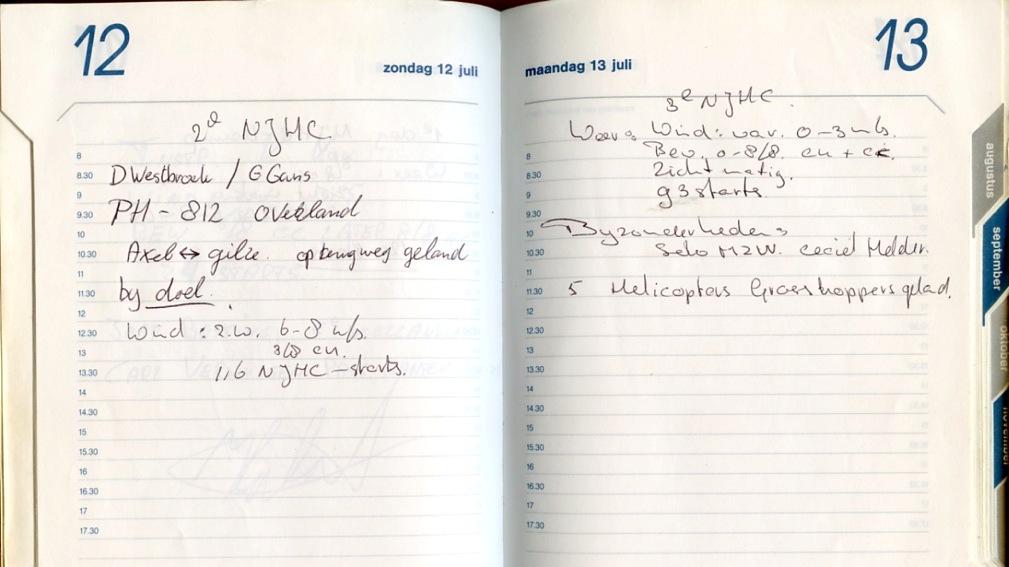 12
zondag 12 juli
2e NJHC
D Westbroek / G Gans
8
8.30
9
PH - 812 overland
9.30
10
Axel ↔ gilze. op terugweg geland
10.30
11
by doel.
11.30
12
Wind: z.w. 6-8 m/s.
12.30
3/8 cu.
13
116 NJHC - starts.
13.30
14
14.30
15
15.30
16
16.30
17
17.30
13
maandag 13 juli
3e NJHC.
Weer: Wind: var. 0-3 m/s.
8
Bew. 0-8/8. cu + ci.
8.30
Zicht matig.
9
93 starts.
9.30
10
Byzonderheden:
10.30
Solo M2W. Ceciel Helder.
11
11.30
5 Helicopters Grasshoppers gelad.
12
12.30
13
13.30
14
14.30
15
15.30
16
16.30
17
17.30
augustus
september
oktober
november